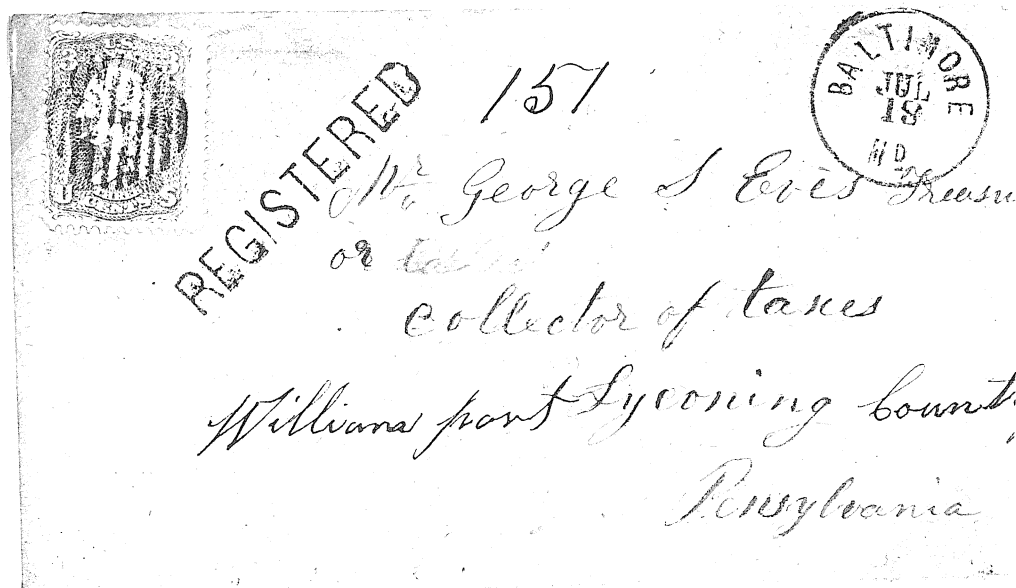 151
REGISTERED
BALTIMORE
JUL
18
MD.
Mr. George S Eves Treasu
or
collector of taxes
Williams port Lyconing Count
Pensylvania